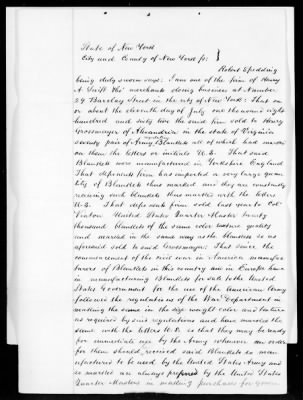 State of New York
City and County of New York ss: }
Robert Spedding
being duly sworn says: I am one of the firm of Henry
A Swift &Co merchants doing business at Number
29 Barclay Street in the city of New York: That on
or about the eleventh day of July one thousand eight
hundred and sixty five the said firm sold to Henry
Grossmayer of Alexandria in the state of Virginia
seventy pair of Army Blankets all of which had marked
on them the letters or initials U.S. That said
Blankets were manufactured in Yorkshire England
That deponents firm has imported a very large quan
tity of Blankets thus marked and they are constantly
receiving such Blankets thus marked with the letters
U.S. That deponents firm sold last year to Col
Vinton United States Quarter Master twenty
thousand blankets of the same color texture quality
and marked in the same way as the blankets so as
aforesaid sold to said Grossmayer: That since the
commencement of the civil war in America manufac
turers of Blankets in this country and in Europe have
in manufacturing Blankets for sale to the United
States Government for the use of the American Army
followed the regulations of the War Department in
making the same in the size weight color and texture
as required by said regulations and have marked the
same with the letters U.S. so that they may be ready
for immediate use by the Army whenever an order
for them should received said Blankets so man
ufactured to be used by the United States Army and
so marked are always prepared by the United States
Quarter Masters in making purchases for Govern